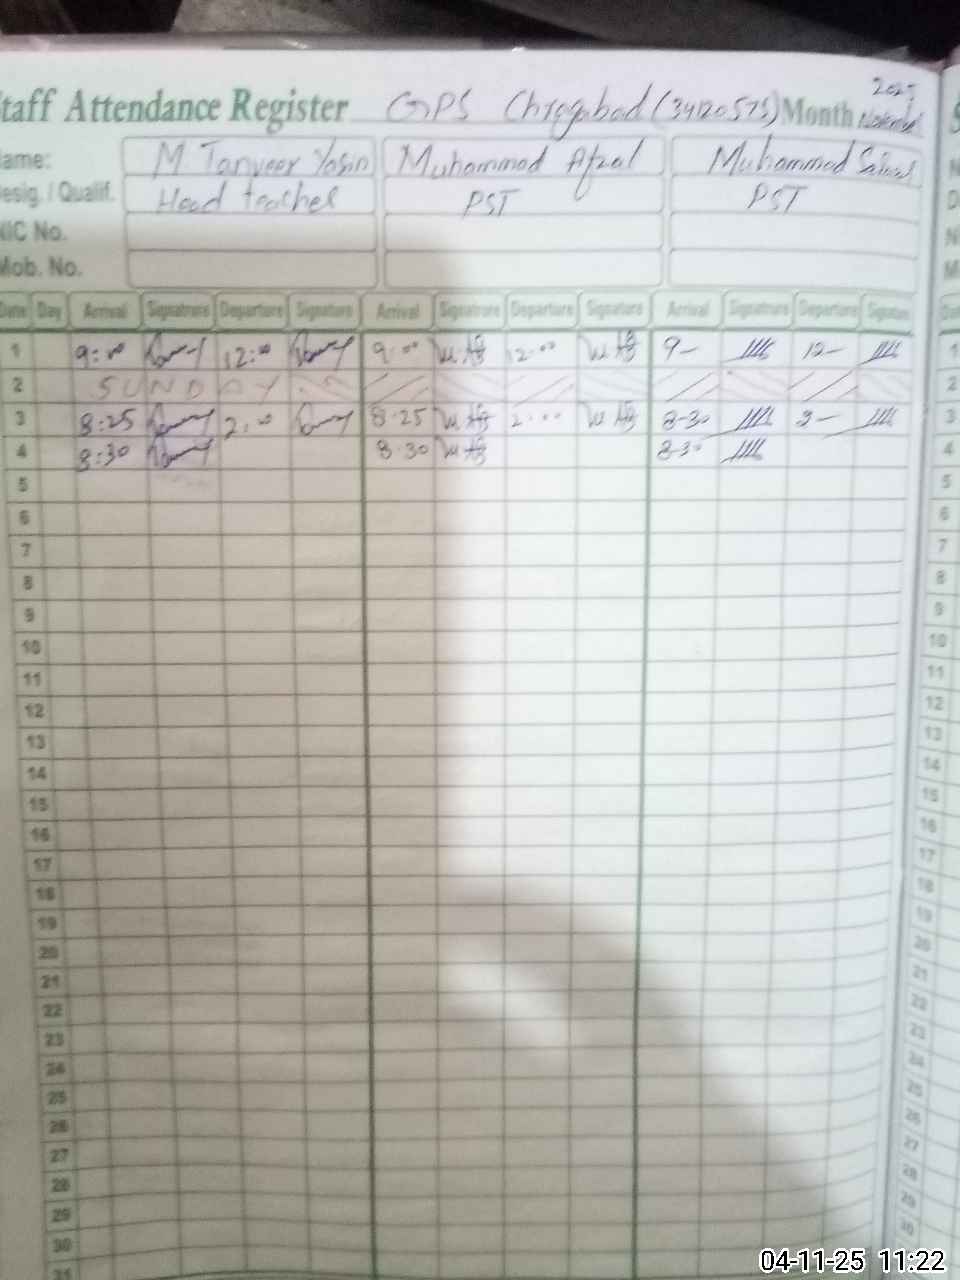 Staff Attendance Register GPS Chragabad (34120575) Month November 2025
Name: M. Tanveer Yasin Muhammad Afzal Muhammad
Desig. / Qualif. Head teacher PST PST
NIC No.
Mob. No.
Date Day Arrival Signature Departure Signature Arrival Signature Departure Signature Arrival Signature Departure Signature
1 9:00 12:00 9:00 12:00 9- 12-
2 SUNDAY
3 8:25 2:00 8:25 2:00 8-30 2-
4 8:30 8:30 8-30
5
6
7
8
9
10
11
12
13
14
15
16
17
18
19
20
21
22
23
24
25
26
27
28
29
30
31
04-11-25 11:22